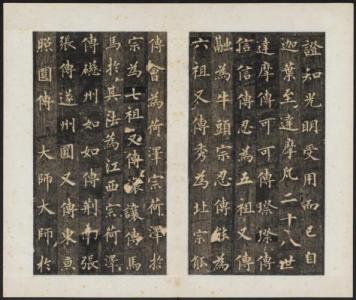 證知光明受用而已自
迦葉至達摩凡二十八世
達摩傳可可傳璨璨傳
信信傳忍為五祖又傳
融為牛頭宗忍傳能為
六祖又傳秀為北宗能
傳會為荷澤宗荷澤於
宗為七祖又傳讓讓傳馬
馬於其法為江西宗荷澤
傳礠州如如傳荊南張
張傳遂州圓又傳東京
照圓傳 大師大師於